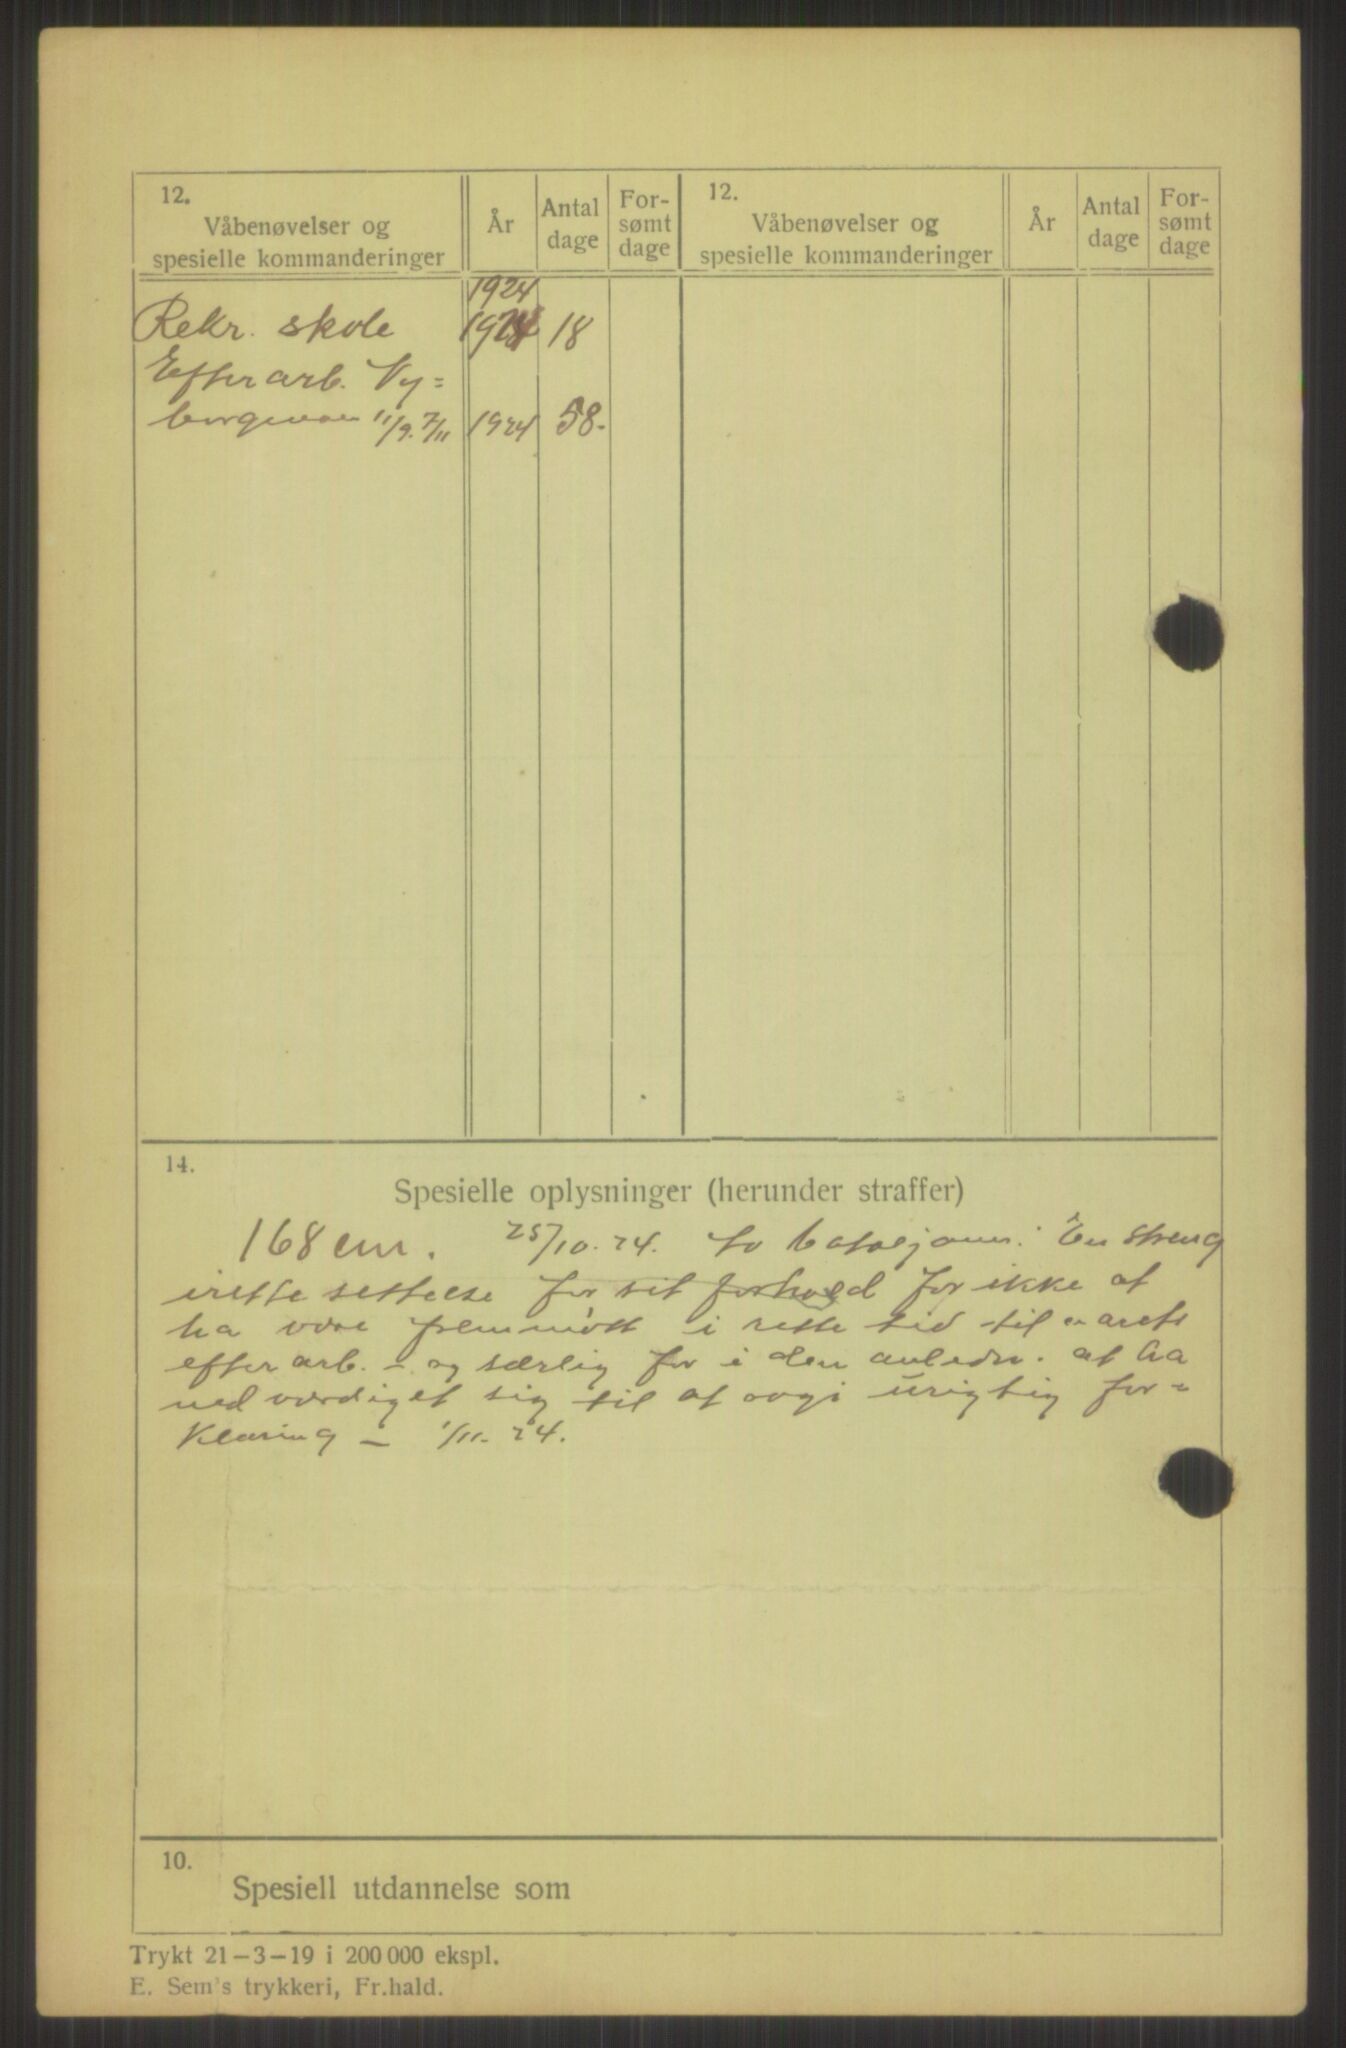 12.
Våbenøvelser og
spesielle kommanderinger
År
Antal
dage
For-
sømt
dage
12.
Våbenøvelser og
spesielle kommanderinger
År
Antal
dage
For-
sømt
dage
1924
Rekr. skole 18
Efter arb. Ny=
11/9. 7/11 1924 58.
14.
Spesielle oplysninger (herunder straffer)
168 cm. 25/10.24. En streng
irettesettelse for sit forhold for ikke at
ha være fremmött i rette tid til årets
efter arb. - og særlig for i den anledn. at ha
nedværdiget sig til at avgi urigtig for=
klaring - 1/11.24.
10.
Spesiell utdannelse som
Trykt 21-3-19 i 200 000 ekspl.
E. Sem's trykkeri, Fr.hald.